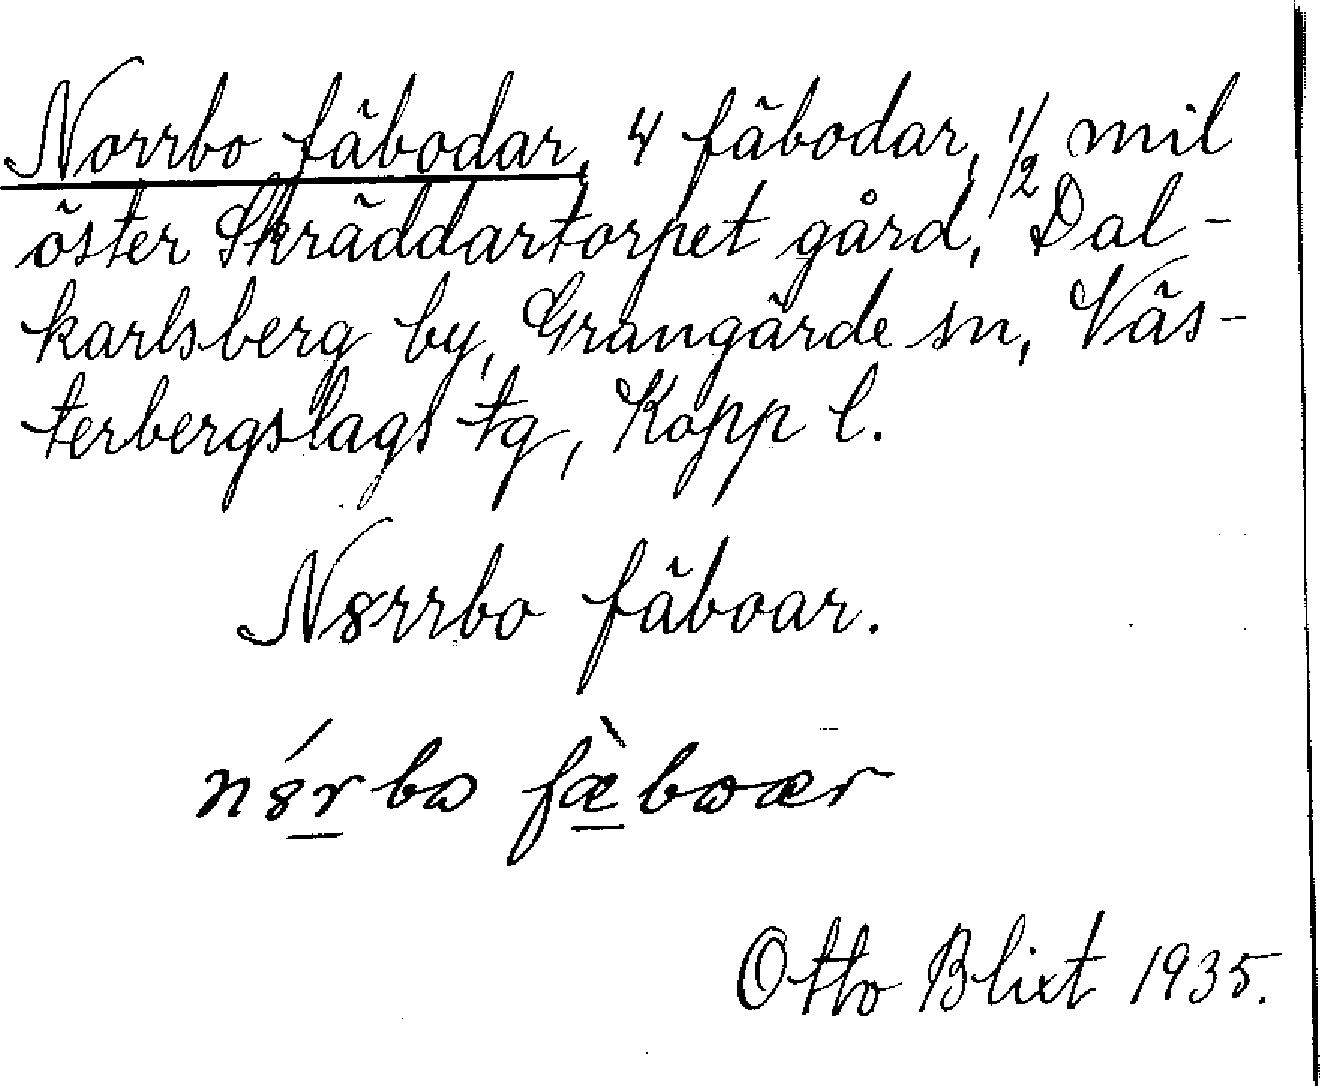 Norrbo fäbodar, 4 fäbodar, 1/2 mil
öster Skräddartorpet gård, Dal-
karlsberg by, Grangärde sn, Väs-
terbergslags tg, Kopp l.
N8rrbo fäboar.
n8́r bω fæ̀bωær
Otto Blixt 1935.